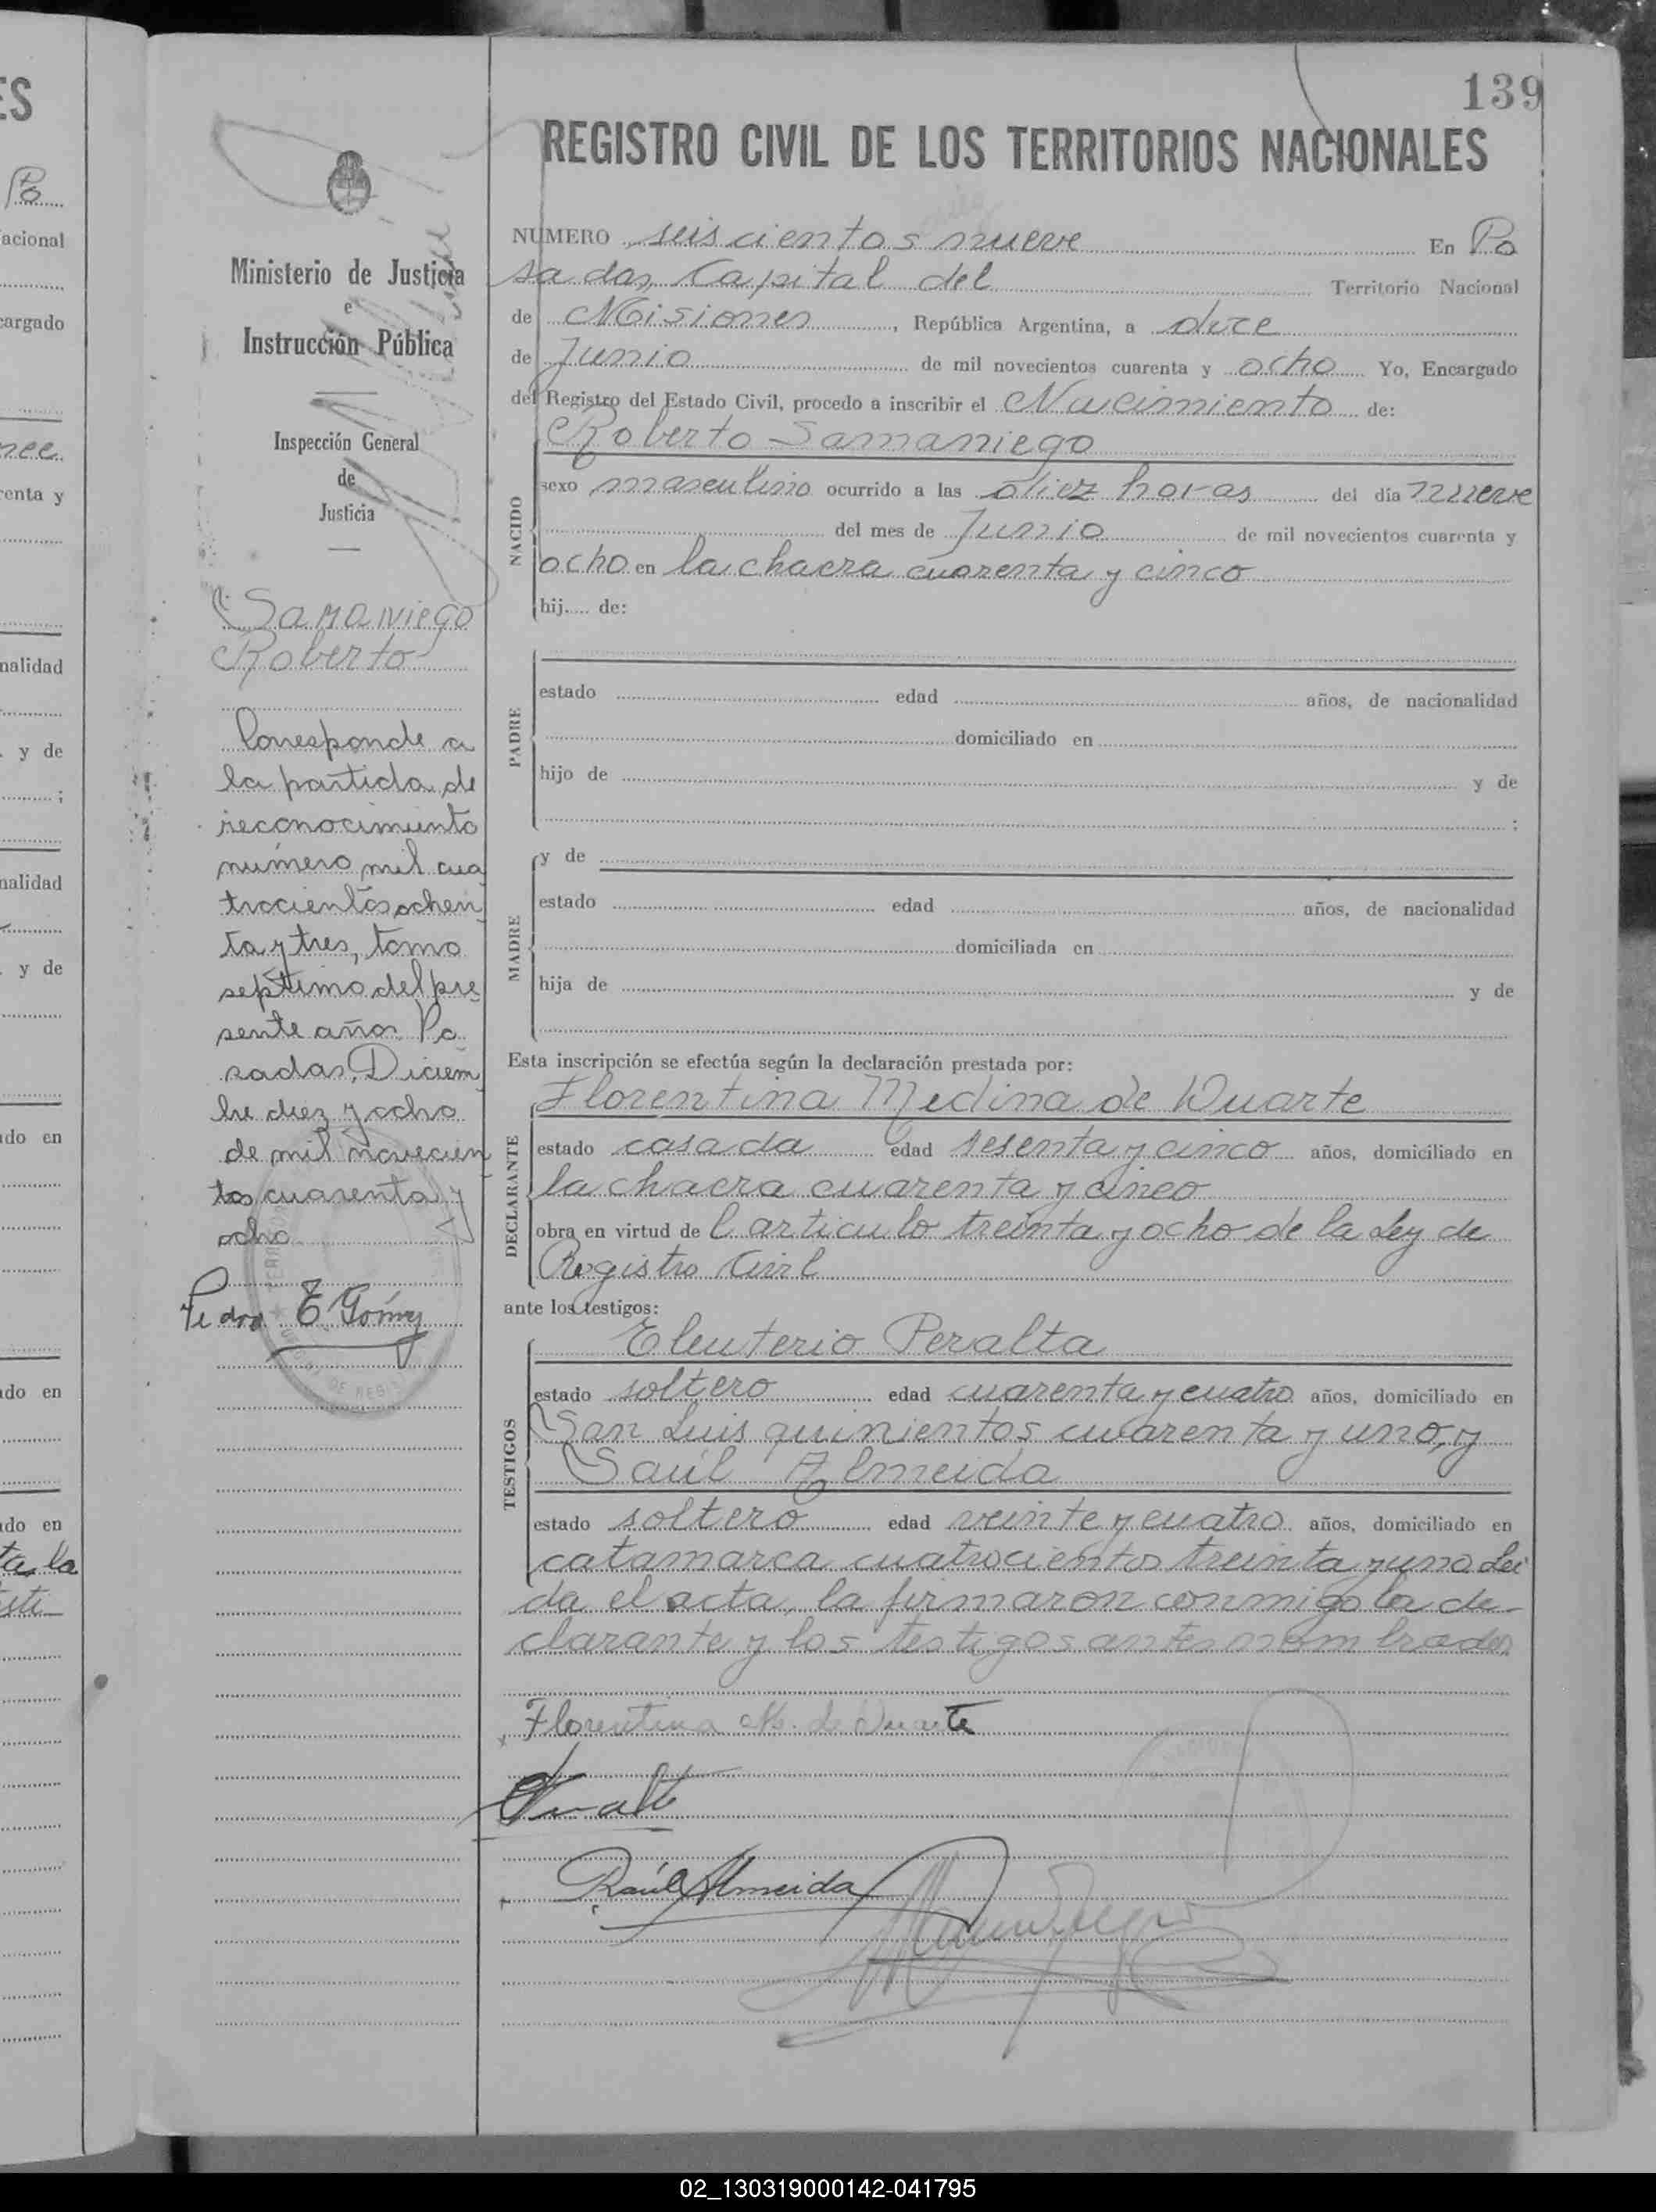 139
REGISTRO CIVIL DE LOS TERRITORIOS NACIONALES
Ministerio de Justicia
e
Instrucción Pública
Inspección General
de
Justicia
Samaniego
Roberto
Corresponde a
la partida de
reconocimiento
número mil cua
trocientos ochen
ta y tres, tomo
septimo del pre
sente año. Po
sadas, Diciem
bre diez y ocho
de mil novecien
tos cuarenta y
ocho
Pedro E Gómez
NUMERO seiscientos nueve En Po
sadas, Capital del Territorio Nacional
de Misiones, República Argentina, a doce
de Junio de mil novecientos cuarenta y ocho Yo, Encargado
del Registro del Estado Civil, procedo a inscribir el Nacimiento de:
Roberto Samaniego
NACIDO
sexo masculino ocurrido a las diez horas del día nueve
del mes de Junio de mil novecientos cuarenta y
ocho en la chacra cuarenta y cinco
hij.... de:
PADRE
estado edad años, de nacionalidad
domiciliado en
hijo de y de
;
MADRE
y de
estado edad años, de nacionalidad
domiciliada en
hija de y de
Esta inscripción se efectúa según la declaración prestada por:
DECLARANTE
Florentina Medina de Duarte
estado casada edad sesenta y cinco años, domiciliado en
la chacra cuarenta y cinco
obra en virtud de l articulo treinta y ocho de la Ley de
Registro Civil
ante los testigos:
TESTIGOS
Eleuterio Peralta
estado soltero edad cuarenta y cuatro años, domiciliado en
San Luis quinientos cuarenta y uno, y
Saúl Almeida
estado soltero edad veinte y cuatro años, domiciliado en
catamarca cuatrocientos treinta y uno Lei
da el acta, la firmaron conmigo la de-
clarante y los testigos antes nombrados
Florentina M. de Duarte
Raúl Almeida
ES
Po
acional
cargado
enta y
nalidad
y de
;
nalidad
y de
do en
do en
do en
ta la
02_130319000142-041795